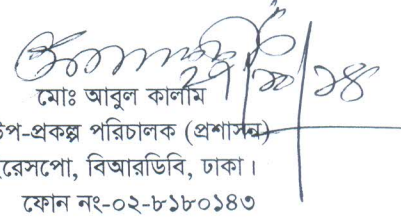 মোঃ আবুল কালাম
উপ-প্রকল্প পরিচালক (প্রশাসন)
বিআরডিবি, ঢাকা।
ফোন নং-০২-৮১৮০১৪৩